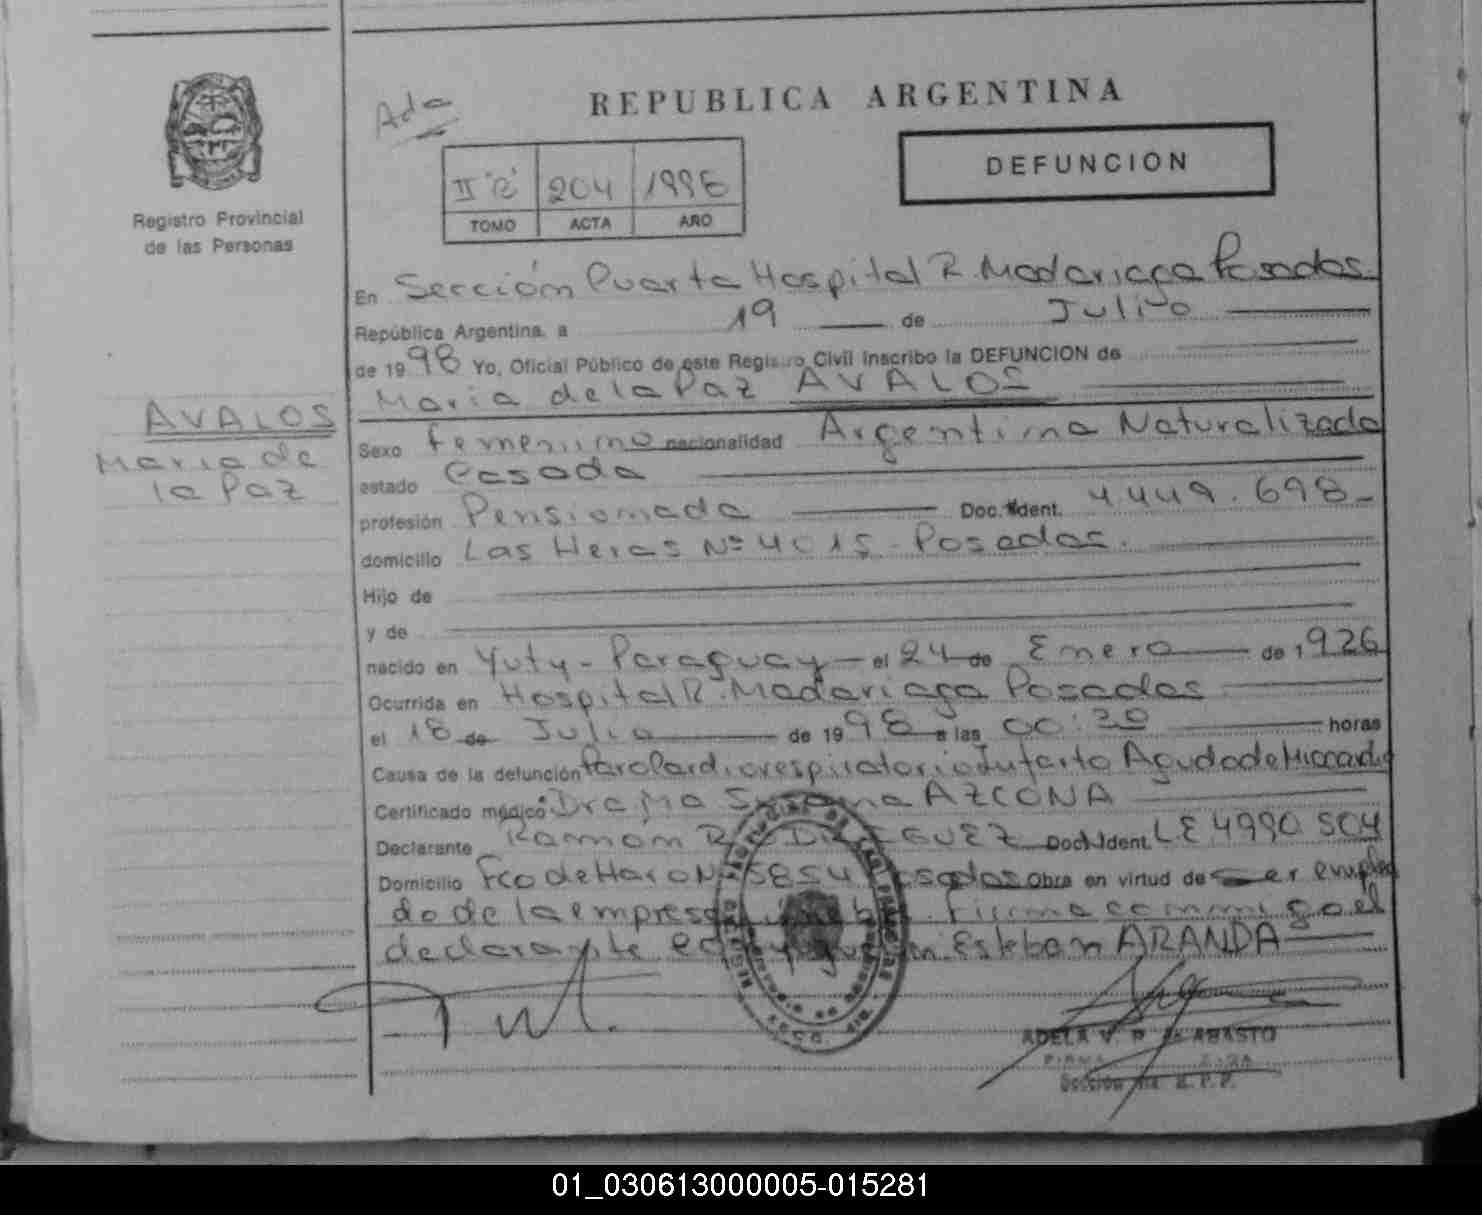 Ada
REPUBLICA ARGENTINA
DEFUNCION
II "C" 204 1998
TOMO ACTA AÑO
Registro Provincial
de las Personas
En Sección Cuarta Hospital R. Madariaga Posadas.
República Argentina, a 19 de Julio
de 1998 Yo, Oficial Público de este Registro Civil inscribo la DEFUNCION de
Maria de la Paz AVALOS
AVALOS
Maria de
la Paz
Sexo femenino nacionalidad Argentina Naturalizada
estado Casada
profesión Pensionada Doc. Ident. 4.449.698-
domicilio Las Heras Nº 4015 - Posadas.
Hijo de
y de
nacido en Yuty - Paraguay - el 24 de Enero de 1926
Ocurrida en Hospital R. Madariaga Posadas
el 18 de Julio de 1998 a las 00:20 horas
Causa de la defunción Paro Cardiorespiratorio Infarto Agudo de Miocardio
Certificado médico Dra AZCONA
Declarante Ramón Doc. Ident. LE 4990504
Domicilio Fco de Haro N 5854 Posadas Obra en virtud de ser emplea
do de la empresa Firma conmigo el
declarante Esteban ARANDA
ADELA V. P. de ABASTO
01_030613000005-015281